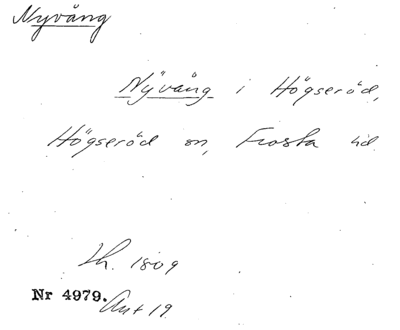 Nyvång
Nyvång i Högseröd,
Högseröd sn, Frosta hd
Lh. 1809
Nr 4979. Ant 19.